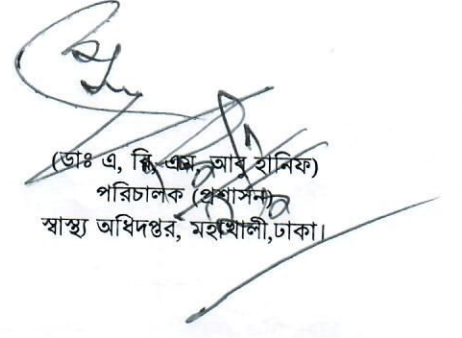 (ডাঃ এ, বি, এম, আবু হানিফ)
পরিচালক (প্রশাসন)
স্বাস্থ্য অধিদপ্তর, মহাখালী,ঢাকা।